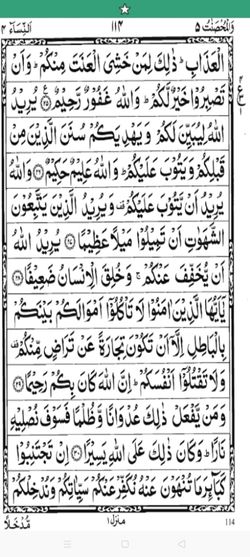 وَالْمُحْصَنٰتُ ۵ ۱۱۴ اَلنِّسَآء ۴
الْعَذَابِ ؕ ذٰلِكَ لِمَنْ خَشِیَ الْعَنَتَ مِنْكُمْ ؕ وَاَنْ
تَصْبِرُوْا خَیْرٌ لَّكُمْ ؕ وَاللّٰهُ غَفُوْرٌ رَّحِیْمٌ ﴿۲۵﴾ یُرِیْدُ
اللّٰهُ لِیُبَیِّنَ لَكُمْ وَیَهْدِیَكُمْ سُنَنَ الَّذِیْنَ مِنْ
قَبْلِكُمْ وَیَتُوْبَ عَلَیْكُمْ ؕ وَاللّٰهُ عَلِیْمٌ حَكِیْمٌ ﴿۲۶﴾ وَاللّٰهُ
یُرِیْدُ اَنْ یَّتُوْبَ عَلَیْكُمْ ۫ وَیُرِیْدُ الَّذِیْنَ یَتَّبِعُوْنَ
الشَّهَوٰتِ اَنْ تَمِیْلُوْا مَیْلًا عَظِیْمًا ﴿۲۷﴾ یُرِیْدُ اللّٰهُ
اَنْ یُّخَفِّفَ عَنْكُمْ ۚ وَخُلِقَ الْاِنْسَانُ ضَعِیْفًا ﴿۲۸﴾
یٰۤاَیُّهَا الَّذِیْنَ اٰمَنُوْا لَا تَاْكُلُوْۤا اَمْوَالَكُمْ بَیْنَكُمْ
بِالْبَاطِلِ اِلَّاۤ اَنْ تَكُوْنَ تِجَارَةً عَنْ تَرَاضٍ مِّنْكُمْ ۫
وَلَا تَقْتُلُوْۤا اَنْفُسَكُمْ ؕ اِنَّ اللّٰهَ كَانَ بِكُمْ رَحِیْمًا ﴿۲۹﴾
وَمَنْ یَّفْعَلْ ذٰلِكَ عُدْوَانًا وَّظُلْمًا فَسَوْفَ نُصْلِیْهِ
نَارًا ؕ وَكَانَ ذٰلِكَ عَلَی اللّٰهِ یَسِیْرًا ﴿۳۰﴾ اِنْ تَجْتَنِبُوْا
كَبَآئِرَ مَا تُنْهَوْنَ عَنْهُ نُكَفِّرْ عَنْكُمْ سَیِّاٰتِكُمْ وَنُدْخِلْكُمْ
مُّدْخَلًا منزل۱ 114